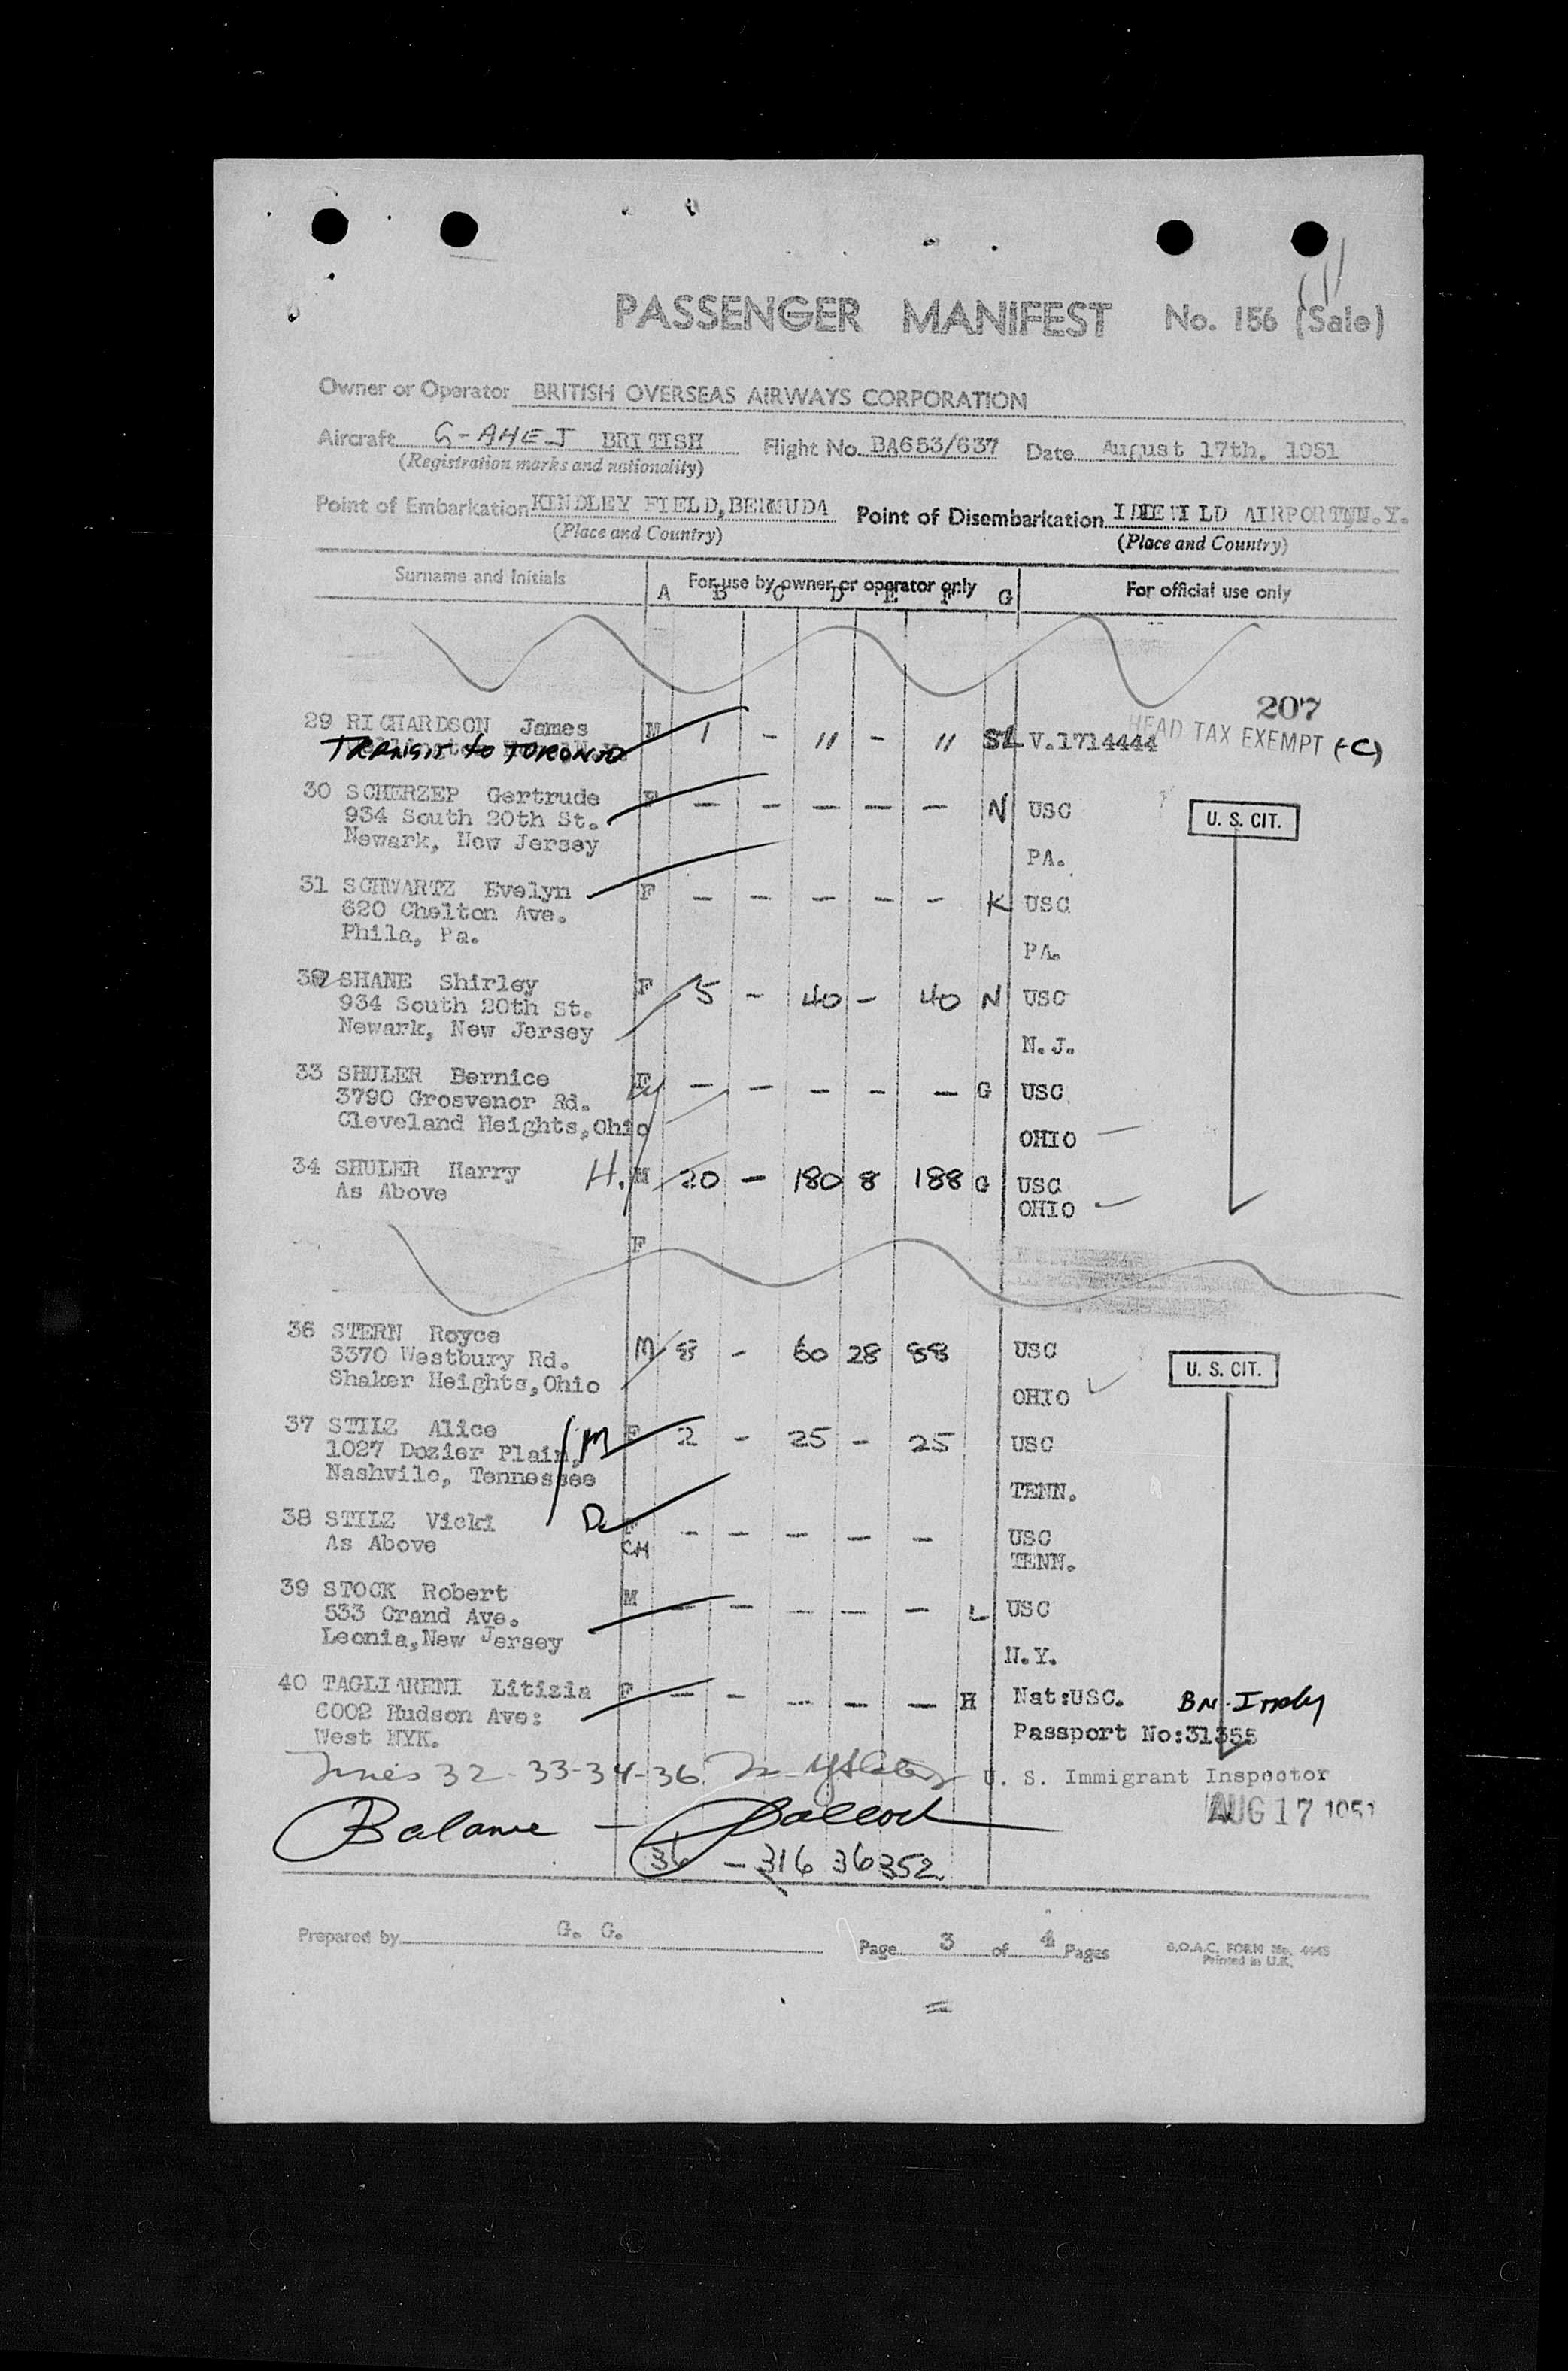 PASSENGER MANIFEST No. 156 (Sale)
Owner or Operator BRITISH OVERSEAS AIRWAYS CORPORATION
Aircraft G-AHEJ BRITISH Flight No. BA653/637 Date August 17th, 1951
(Registration marks and nationality)
Point of Embarkation KINDLEY FIELD, BERMUDA Point of Disembarkation IDLEWILD AIRPORT, N.Y.
(Place and Country) (Place and Country)
Surname and Initials For use by owner or operator only For official use only
A B C D E F G
207
29 RICHARDSON James M 1 - " - " V.1714444 HEAD TAX EXEMPT (-C)
TRANSIT to TORONTO
30 SCHERZEP Gertrude F - - - - - N USC U. S. CIT.
934 South 20th St.
Newark, New Jersey PA.
31 SCHWARTZ Evelyn F - - - - - K USC
620 Chelton Ave.
Phila, Pa. PA.
32 SHANE Shirley F 5 - 40 - 40 N USC
934 South 20th St.
Newark, New Jersey N.J.
33 SHULER Bernice F - - - - - G USC
3790 Grosvenor Rd.
Cleveland Heights, Ohio OHIO
34 SHULER Harry H. M 20 - 180 8 188 G USC
As Above OHIO
F
36 STERN Royce M 8 - 60 28 88 USC U. S. CIT.
3370 Westbury Rd.
Shaker Heights, Ohio OHIO
37 STILZ Alice M F 2 - 25 - 25 USC
1027 Dozier Plain,
Nashvile, Tennessee TENN.
38 STILZ Vicki D F - - - - - USC
As Above CH TENN.
39 STOCK Robert M - - - - - L USC
533 Grand Ave.
Leonia, New Jersey N.Y.
40 TAGLIARENI Litizia F - - - - - H Nat:USC. BN-Italy
6002 Hudson Ave:
West NYK. Passport No:31355
Lines 32-33-34-36 U. S. Immigrant Inspector
Balance - AUG 17 1951
36 - 316 36 352
Prepared by G. G. Page 3 of 4 Pages B.O.A.C. FORM No. 4443
Printed in U.K.